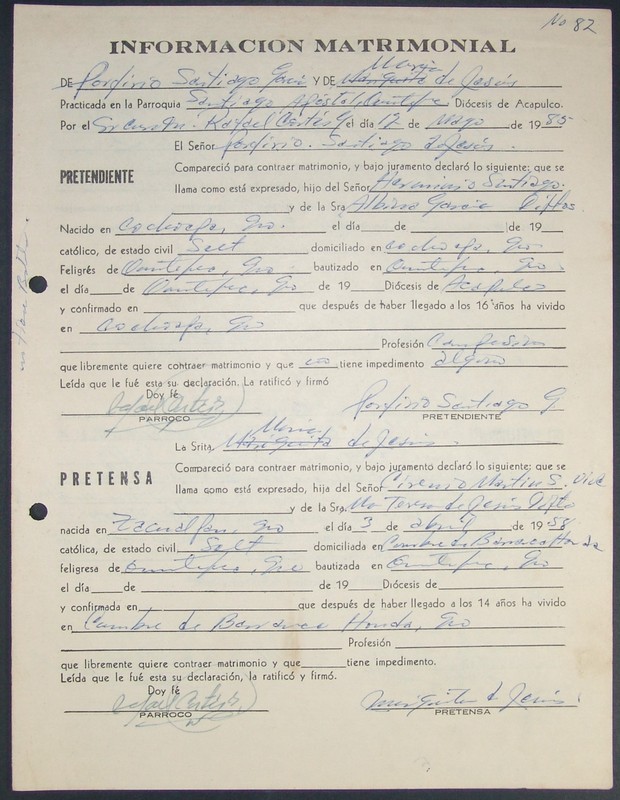 No 82
INFORMACION MATRIMONIAL
Maria
DE Porfirio Santiago Garcia Y DE Marquita de Jesús
Practicada en la Parroquia Santiago Apóstol, Ometepec Diócesis de Acapulco.
Por el Sr cura Pr. Rafael Cortés el día 12 de Mayo de 1985
El Señor Porfirio. Santiago de Jesus.
PRETENDIENTE
Compareció para contraer matrimonio, y bajo juramento declaró lo siguiente; que se
llama como está expresado, hijo del Señor Herminio Santiago.
y de la Sra Albina Garcia Diftos
Nacido en Cochoapa, Gro. el día de de 19
católico, de estado civil Solt domiciliado en Cochoapa, Gro
Feligrés de Ometepec, Gro. bautizado en Ometepec, Gro
el día de Ometepec, Gro de 19 Diócesis de Acapulco
y confirmado en que después de haber llegado a los 16 años ha vivido
en Cochoapa, Gro
Profesión Campesino
que libremente quiere contraer matrimonio y que no tiene impedimento alguno
Leída que le fué esta su declaración. La ratificó y firmó
Doy fé
Rafael Cortés Porfirio Santiago G.
PARROCO PRETENDIENTE
Maria
La Srita. Mariquita de Jesús.
PRETENSA
Compareció para contraer matrimonio, y bajo juramento declaró lo siguiente; que se
llama como está expresado, hija del Señor Cirenio Martin S. Vive
y de la Sra. Ma Teresa de Jesús Difta
nacida en Zacualpan, Gro el día 3 de abril de 1958
católica, de estado civil Solt domiciliada en Cumbre de Barranca Honda
feligresa de Ometepec, Gro bautizada en Ometepec, Gro
el día de de 19 Diócesis de
y confirmada en que después de haber llegado a los 14 años ha vivido
en Cumbre de Barranca Honda, Gro
Profesión
que libremente quiere contraer matrimonio y que tiene impedimento.
Leída que le fué esta su declaración, la ratificó y firmó.
Doy fé
Rafael Cortés Mariquita de Jesús
PARROCO PRETENSA